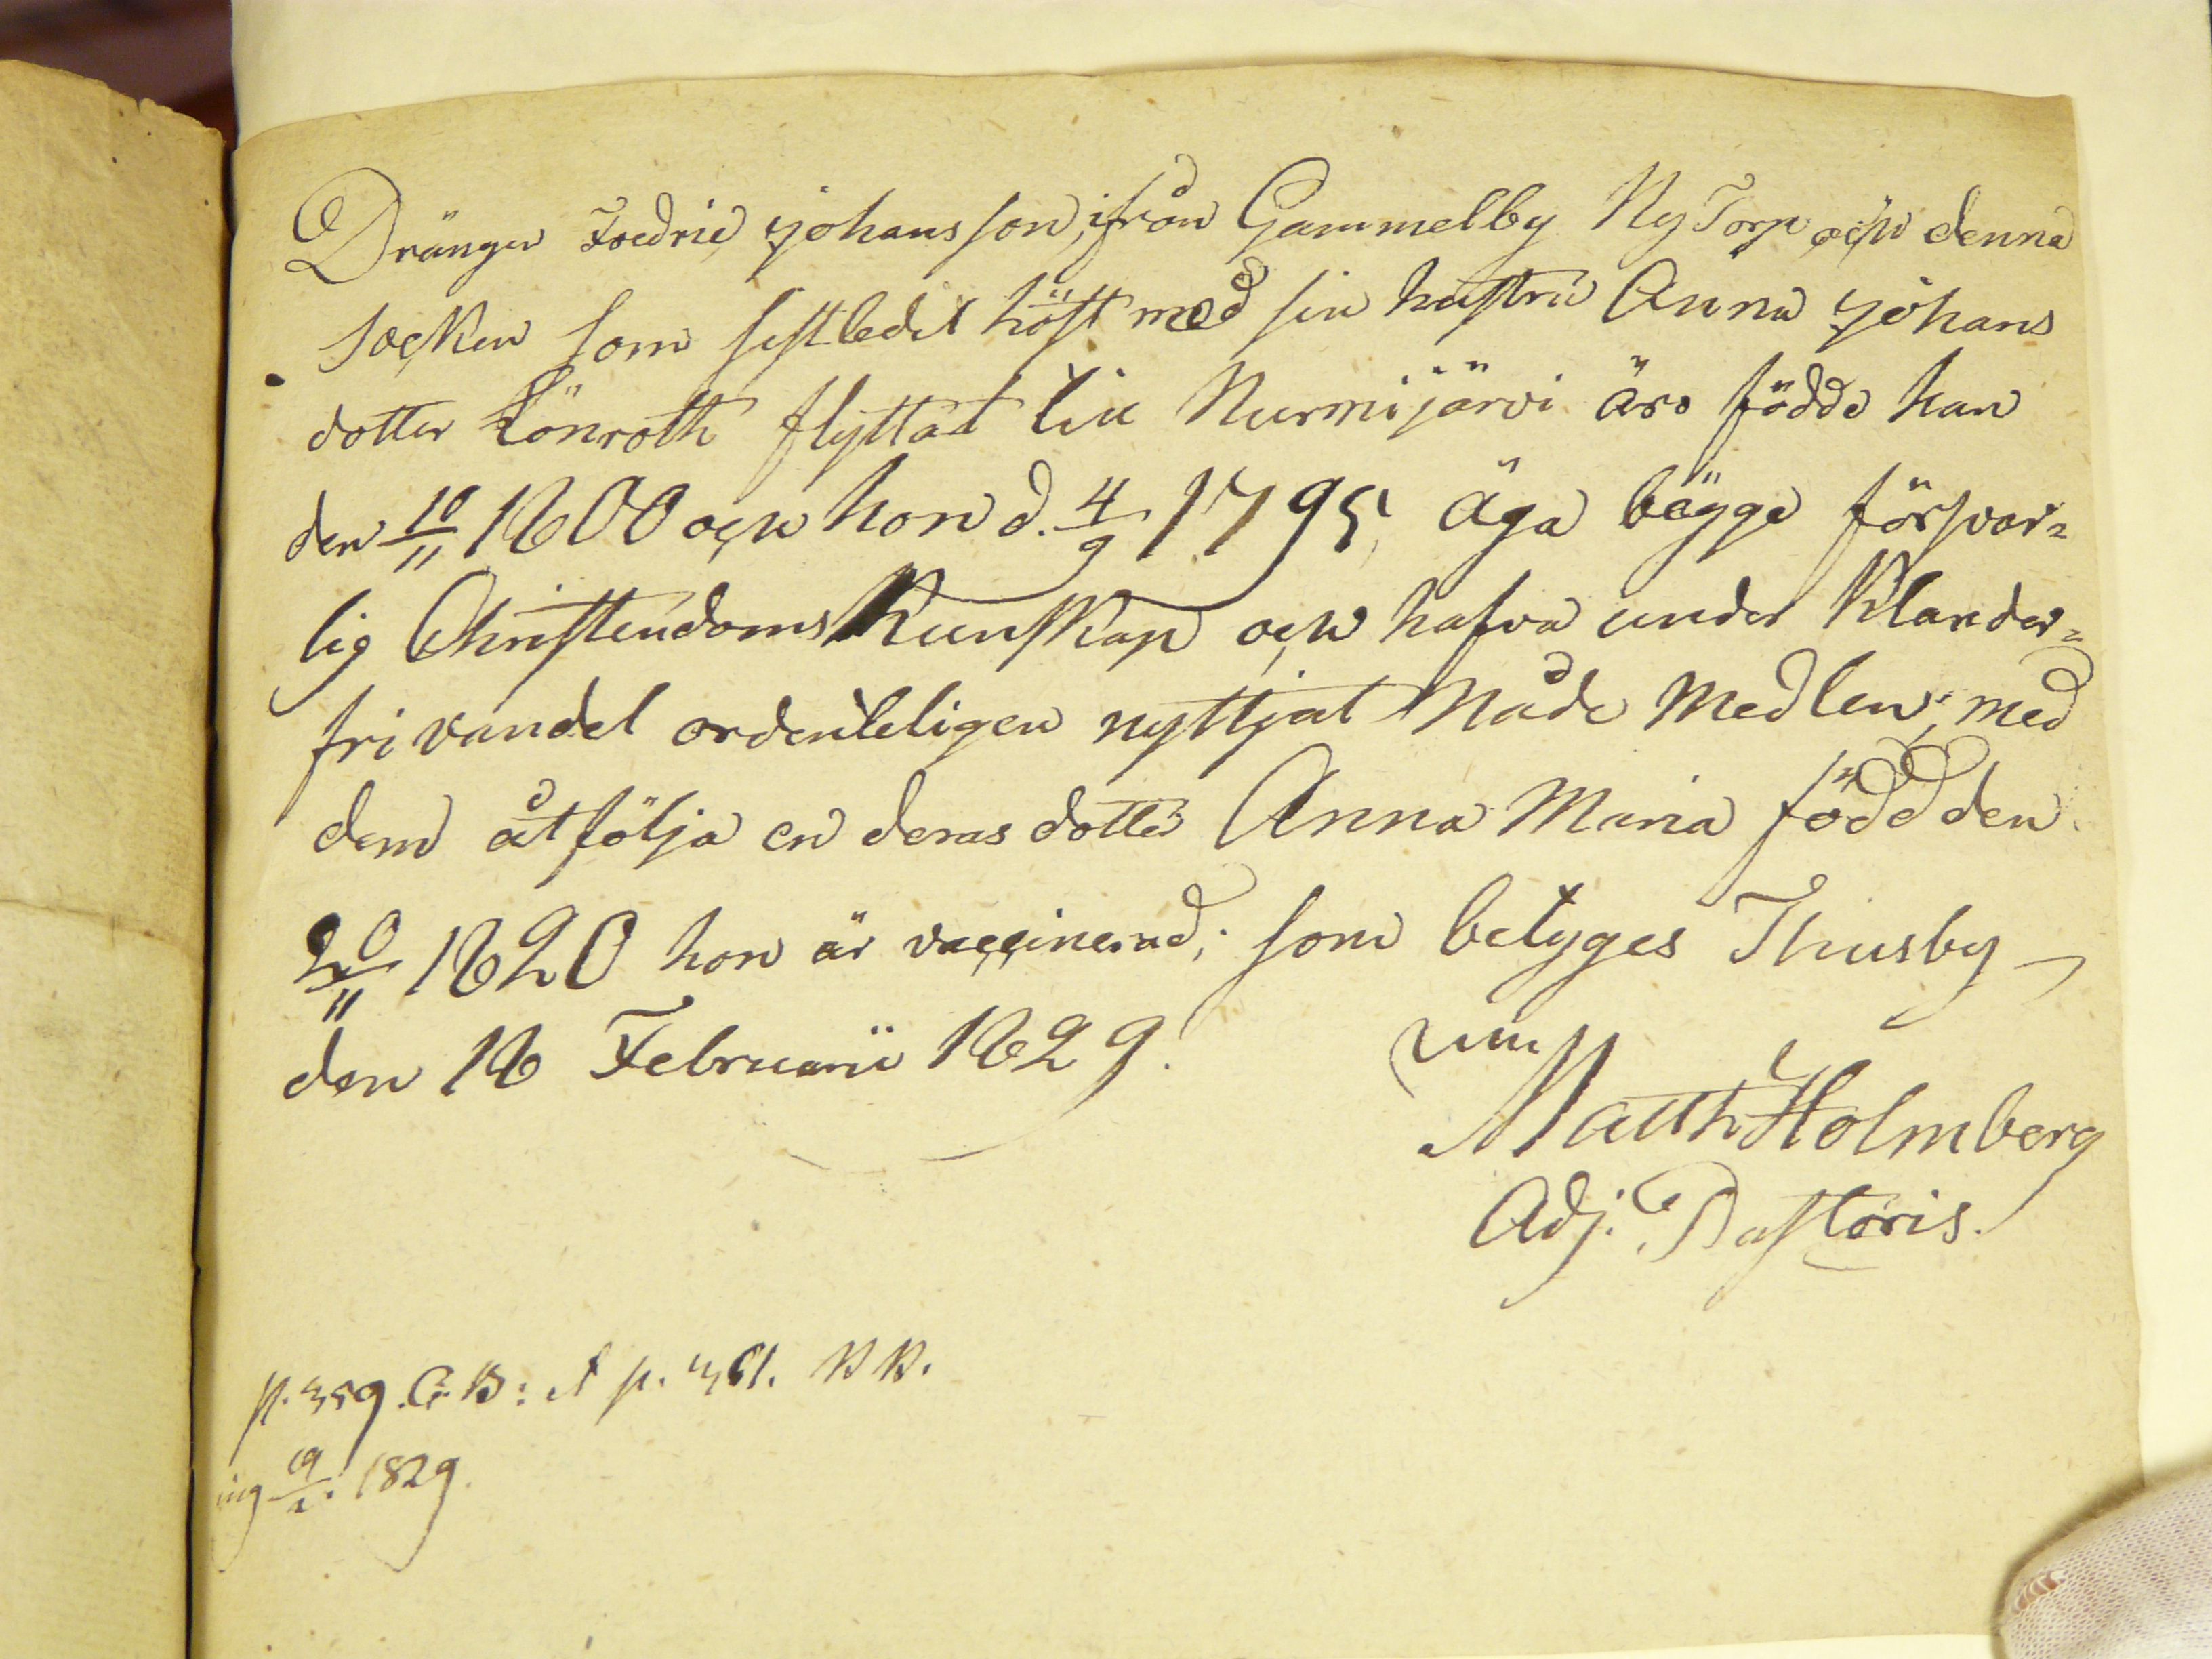 Drängen Fredric Johansson, ifrån Gammelby Ny Torp och denna
socken som sistledit höst med sin hustru Anna Johans
dotter Lönroth flyttat till Nurmijärvi äro födde han
den 10/11 1800 och hon d. 4/9 1795, äga bägge försvar=
lig Christendoms Kunskap och hafva under Klander=
fri vandel ordenteligen nyttjat Nåde Medlen; med
dem åtfölja en deras dotter Anna Maria född den
20/11 1820 hon är vaccinerad; som betyges Thusby
den 18 Februarii 1829.
Matth Holmberg
Adj. Pastoris.
p. 359. C. B: et p. 361.
19/2. 1829.